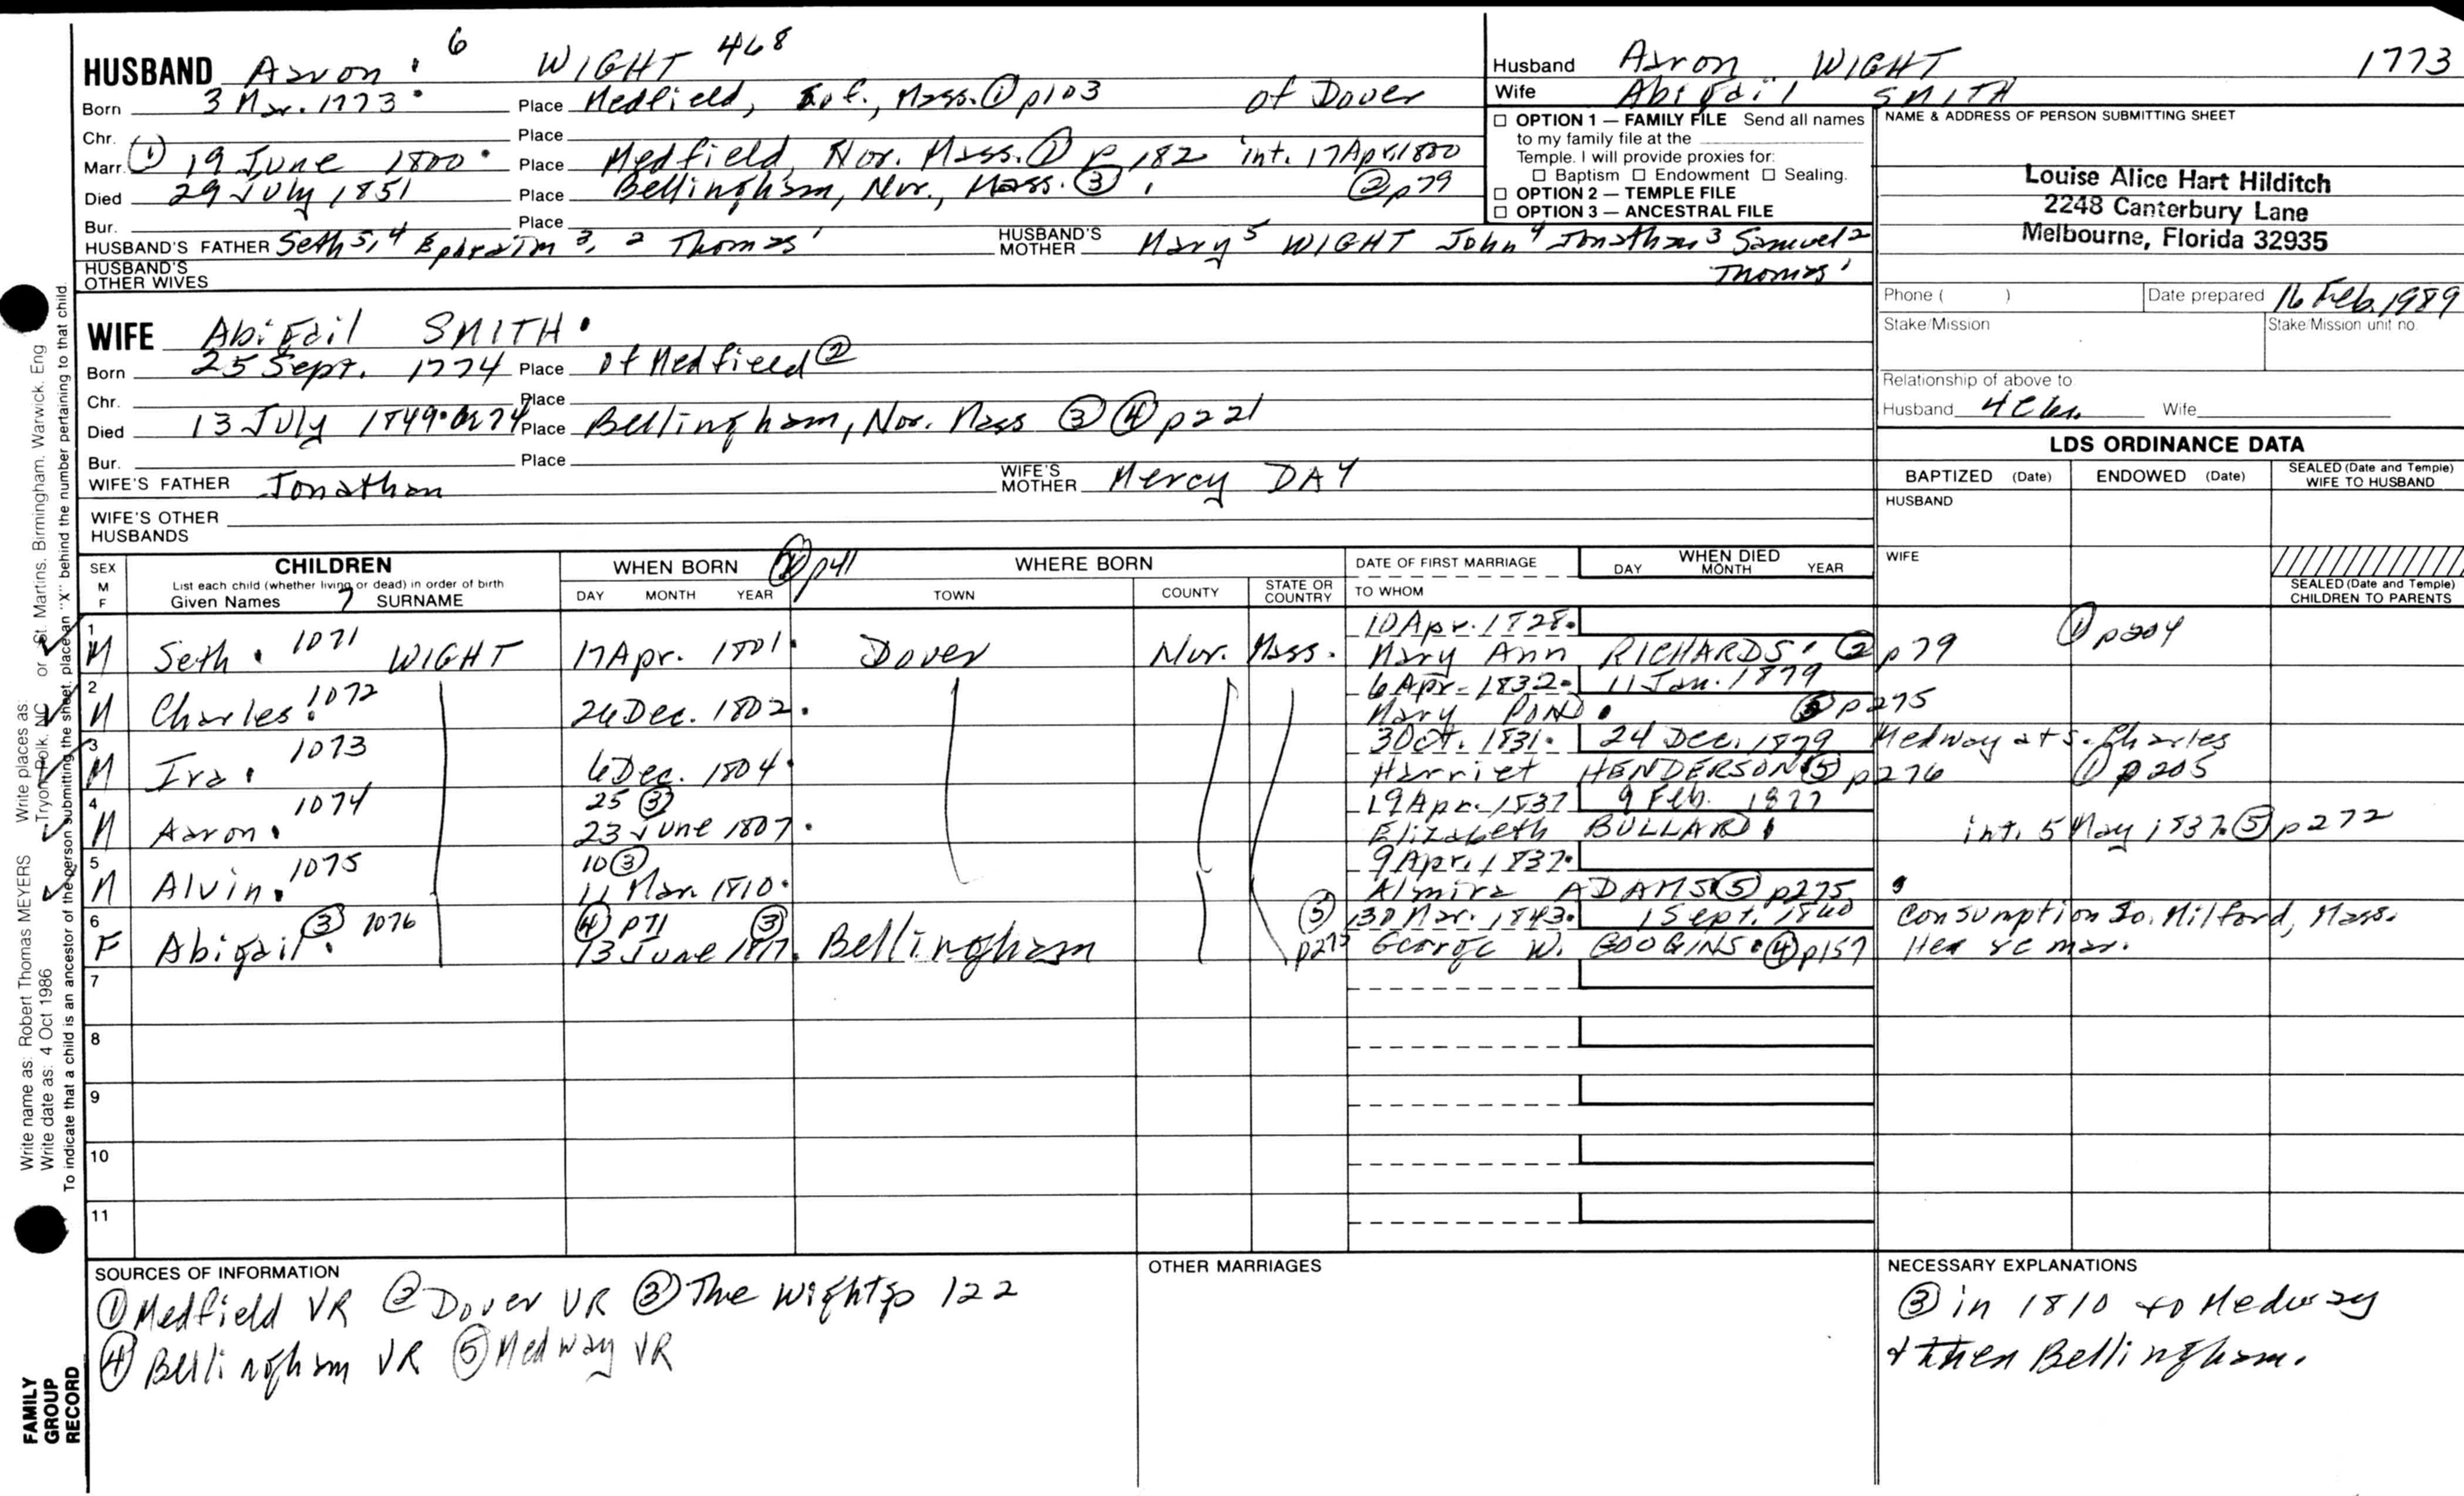 HUSBAND Aaron 6 WIGHT 468
Born 3 Mar. 1773 Place Medfield, Mass. ① p103 of Dover
Chr. Place
Marr. (1) 19 June 1800 Place Medfield, Nor. Mass. ① p 182 int. 17 Apr. 1800
Died 29 July 1851 Place Bellingham, Nor., Mass. ③, ② p79
Bur. Place
HUSBAND'S FATHER Seth 5, 4 Ephraim 3, 2 Thomas 1 HUSBAND'S MOTHER Mary 5 WIGHT John 4 Jonathan 3 Samuel 2
Thomas 1
HUSBAND'S OTHER WIVES
Husband Aaron WIGHT 1773
Wife Abigail SMITH
☐ OPTION 1 — FAMILY FILE Send all names
to my family file at the
Temple. I will provide proxies for:
☐ Baptism ☐ Endowment ☐ Sealing.
☐ OPTION 2 — TEMPLE FILE
☐ OPTION 3 — ANCESTRAL FILE
NAME & ADDRESS OF PERSON SUBMITTING SHEET
Louise Alice Hart Hilditch
2248 Canterbury Lane
Melbourne, Florida 32935
Phone ( ) Date prepared 16 Feb. 1989
Stake/Mission Stake/Mission unit no.
Relationship of above to
Husband 4C Wife
WIFE Abigail SMITH
Born 25 Sept. 1774 Place of Medfield ②
Chr. Place
Died 13 July 1849 Place Bellingham, Nor. Mass ③ ④ p221
Bur. Place
WIFE'S FATHER Jonathan WIFE'S MOTHER Mercy DAY
WIFE'S OTHER HUSBANDS
LDS ORDINANCE DATA
BAPTIZED (Date) ENDOWED (Date) SEALED (Date and Temple) WIFE TO HUSBAND
HUSBAND
WIFE
SEALED (Date and Temple) CHILDREN TO PARENTS
SEX M F
CHILDREN
List each child (whether living or dead) in order of birth
Given Names 7 SURNAME
WHEN BORN p41
DAY MONTH YEAR
WHERE BORN
TOWN COUNTY STATE OR COUNTRY
DATE OF FIRST MARRIAGE
TO WHOM
WHEN DIED
DAY MONTH YEAR
1 M Seth 1071 WIGHT 17 Apr. 1801 Dover Nor. Mass. 10 Apr. 1828
Mary Ann RICHARDS ② p79 ① p204
2 M Charles 1072 26 Dec. 1802 6 Apr. 1832 11 Jan. 1879
Mary POND ⑤ p275
3 M Ira 1073 6 Dec. 1804 3 Oct. 1831 24 Dec. 1879 Medway at s. Charles
Harriet HENDERSON ⑤ p276 ① p205
4 M Aaron 1074 25 ③ 23 June 1807 19 Apr. 1837 9 Feb. 1877
Elizabeth BULLARD int. 5 May 1837 ⑤ p272
5 M Alvin 1075 10 ③ 11 Mar. 1810 9 Apr. 1837
Almira ADAMS ⑤ p275
6 F Abigail ③ 1076 ④ p71 ③ 13 June 1817 Bellingham ⑤ 30 Mar. 1843 1 Sept. 1860 Consumption So. Milford, Mass.
George W. GOOGINS ④ p157 He remar.
7
8
9
10
11
SOURCES OF INFORMATION
① Medfield VR ② Dover VR ③ The Wights p 122
④ Bellingham VR ⑤ Medway VR
OTHER MARRIAGES
NECESSARY EXPLANATIONS
③ in 1810 to Medway
& then Bellingham.
Write name as: Robert Thomas MEYERS Write places as: Tryon, Polk, NC or St. Martins, Birmingham, Warwick, Eng
Write date as: 4 Oct 1986
To indicate that a child is an ancestor of the person submitting the sheet, place an "X" behind the number pertaining to that child.
FAMILY GROUP RECORD